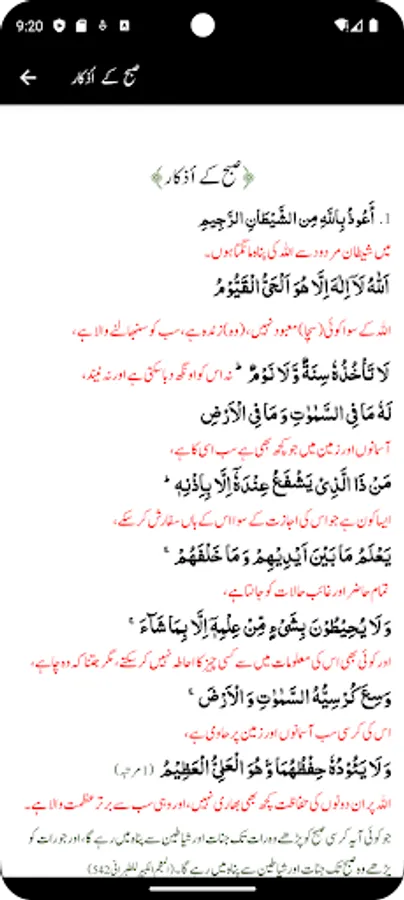 9:20
صبح کے أذکار
﴿صبح کے أذکار﴾
1. أَعُوذُ بِاللَّهِ مِنَ الشَّيْطَانِ الرَّجِيمِ
میں شیطان مردود سے اللہ کی پناہ مانگتا ہوں۔
اَللّٰهُ لَآ اِلٰهَ اِلَّا هُوَ اَلْحَیُّ الْقَیُّوْمُ
اللہ کے سوا کوئی (سچا) معبود نہیں، (وہ) زندہ ہے، سب کو سنبھالنے والا ہے،
لَا تَاْخُذُهٗ سِنَةٌ وَّلَا نَوْمٌ ؕ نہ اس کو اونگھ دبا سکتی ہے اور نہ نیند،
لَهٗ مَا فِی السَّمٰوٰتِ وَمَا فِی الْاَرْضِ
آسمانوں اور زمین میں جو کچھ بھی ہے سب اسی کا ہے،
مَنْ ذَا الَّذِیْ یَشْفَعُ عِنْدَهٗٓ اِلَّا بِاِذْنِهٖ ؕ
ایسا کون ہے جو اس کی اجازت کے سوا اس کے ہاں سفارش کر سکے،
یَعْلَمُ مَا بَیْنَ اَیْدِیْهِمْ وَمَا خَلْفَهُمْ ۚ
تمام حاضر اور غائب حالات کو جانتا ہے،
وَلَا یُحِیْطُوْنَ بِشَیْءٍ مِّنْ عِلْمِهٖٓ اِلَّا بِمَا شَآءَ ۚ
اور کوئی بھی اس کی معلومات میں سے کسی چیز کا احاطہ نہیں کر سکتے، مگر جتنا کہ وہ چاہے،
وَسِعَ کُرْسِیُّهُ السَّمٰوٰتِ وَالْاَرْضَ ۚ
اس کی کرسی سب آسمانوں اور زمین پر حاوی ہے،
وَلَا یَئُوْدُهٗ حِفْظُهُمَا وَهُوَ الْعَلِیُّ الْعَظِیْمُ (1 مرتبہ)
اللہ پر ان دونوں کی حفاظت کچھ بھی بھاری نہیں، اور وہی سب سے برتر عظمت والا ہے۔
جو کوئی آیہ کرسی صبح کو پڑھے وہ رات تک جنات اور شیاطین سے پناہ میں رہے گا، اور جو رات کو
پڑھے وہ صبح تک جنات اور شیاطین سے پناہ میں رہے گا۔ (المعجم الکبیر للطبرانی 542)